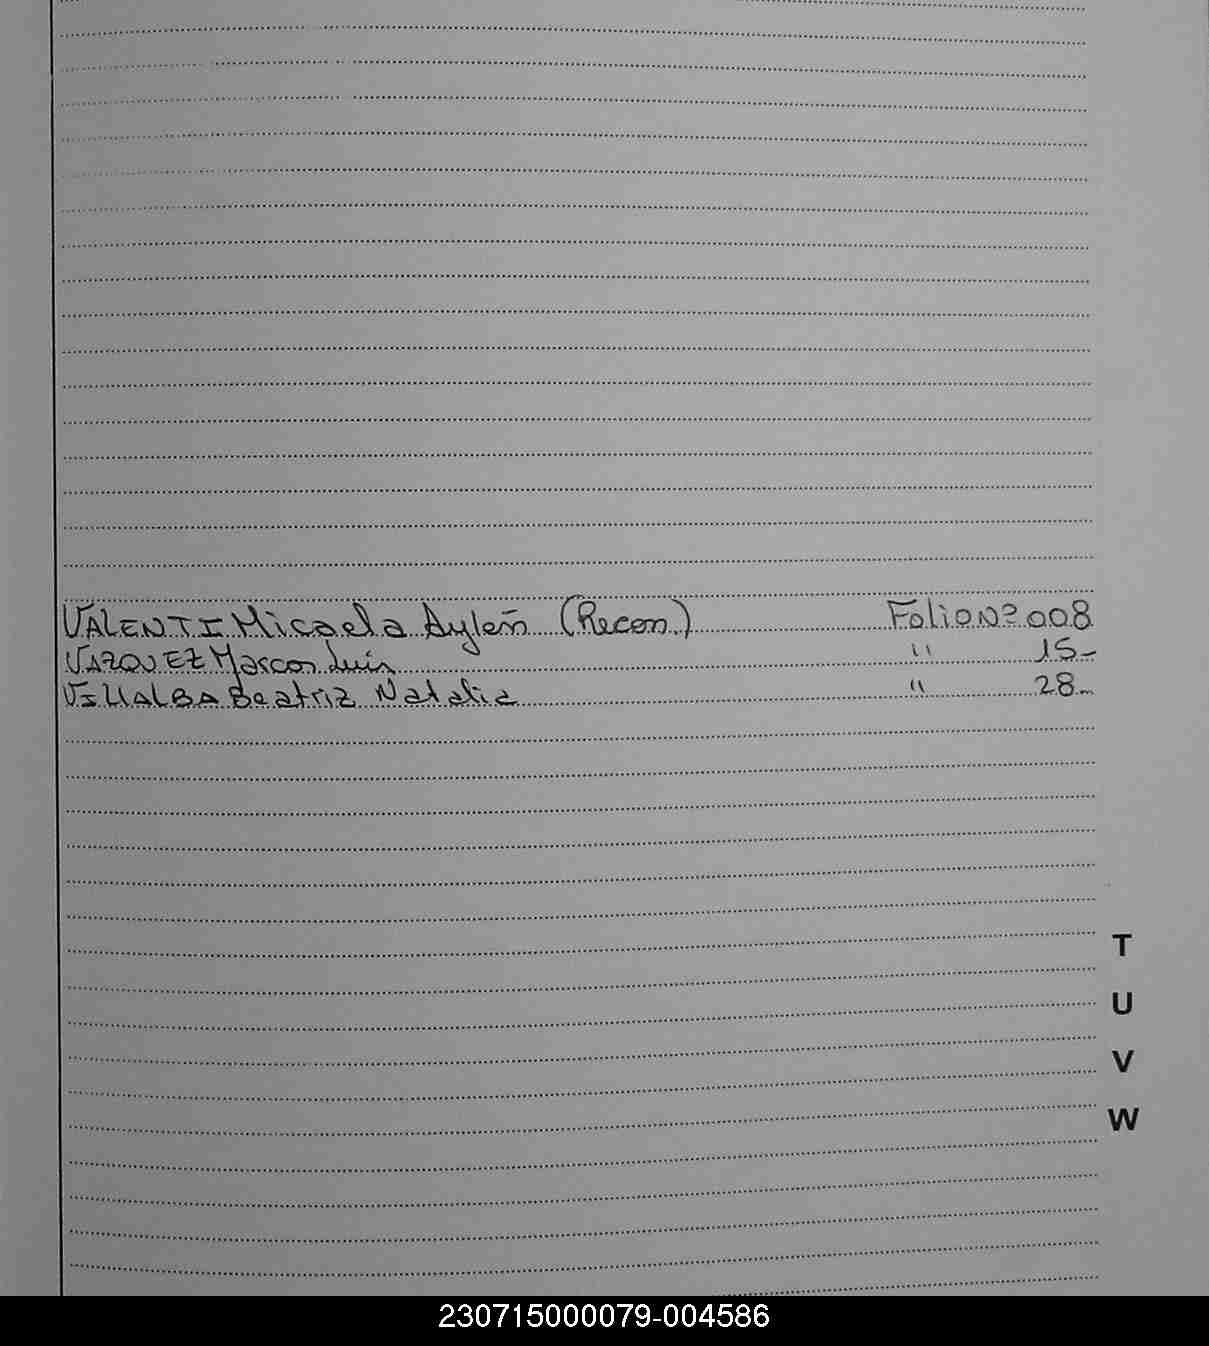 VALENTI Micaela Aylén (Recon.) Folio Nº 008
VAZQUEZ Marcos Luis " 15-
VILLALBA Beatriz Natalia " 28-
T
U
V
W
230715000079-004586